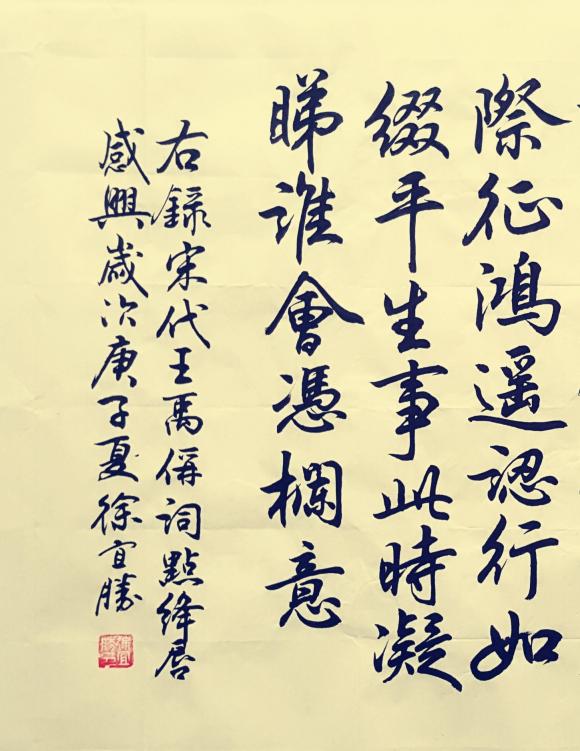 際征鴻遥認行如
綴平生事此時凝
睇誰會憑欄意
右録宋代王禹偁詞點絳唇
感興歲次庚子夏徐宜勝